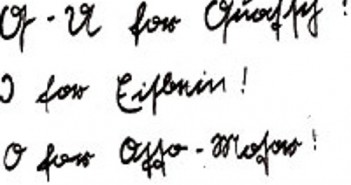 Q-U for Quatsch!
I for Eisbein!
O for Otto-Motor!